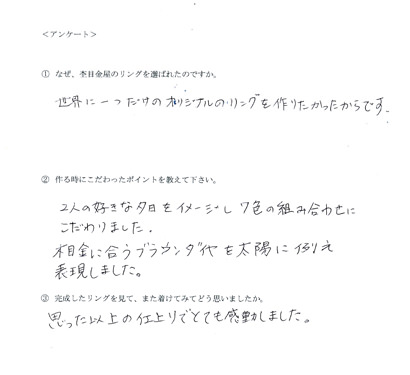 ＜アンケート＞
① なぜ、杢目金屋のリングを選ばれたのですか。
世界に一つだけのオリジナルのリングを作りたかったからです。
② 作る時にこだわったポイントを教えて下さい。
2人の好きな夕日をイメージし7色の組み合わせに
こだわりました。
木目金に合うブラウンダイヤを太陽に例え
表現しました。
③ 完成したリングを見て、また着けてみてどう思いましたか。
思った以上の仕上りでとても感動しました。